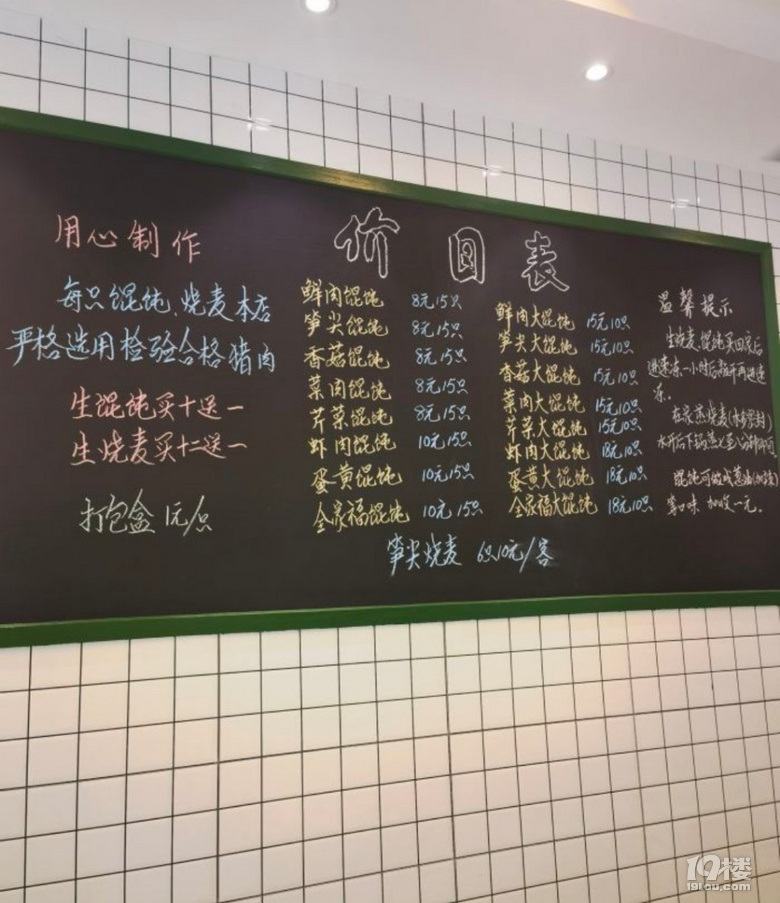 价目表
用心制作
每只馄饨、烧麦本店
严格选用检验合格猪肉
生馄饨买十送一
生烧麦买十二送一
打包盒1元/只
鲜肉馄饨 8元15只
笋尖馄饨 8元15只
香菇馄饨 8元15只
菜肉馄饨 8元15只
芹菜馄饨 8元15只
虾肉馄饨 10元15只
蛋黄馄饨 10元15只
全家福馄饨 10元15只
鲜肉大馄饨 15元10只
笋尖大馄饨 15元10只
香菇大馄饨 15元10只
菜肉大馄饨 15元10只
芹菜大馄饨 15元10只
虾肉大馄饨 18元10只
蛋黄大馄饨 18元10只
全家福大馄饨 18元10只
笋尖烧麦 6只10元/客
温馨提示
生烧麦、馄饨买回家后
速冻一小时后敲开再速
冻。
在家蒸烧麦
水开后下锅蒸
馄饨可做成葱油
等口味 加收一元。
19楼
19lou.com